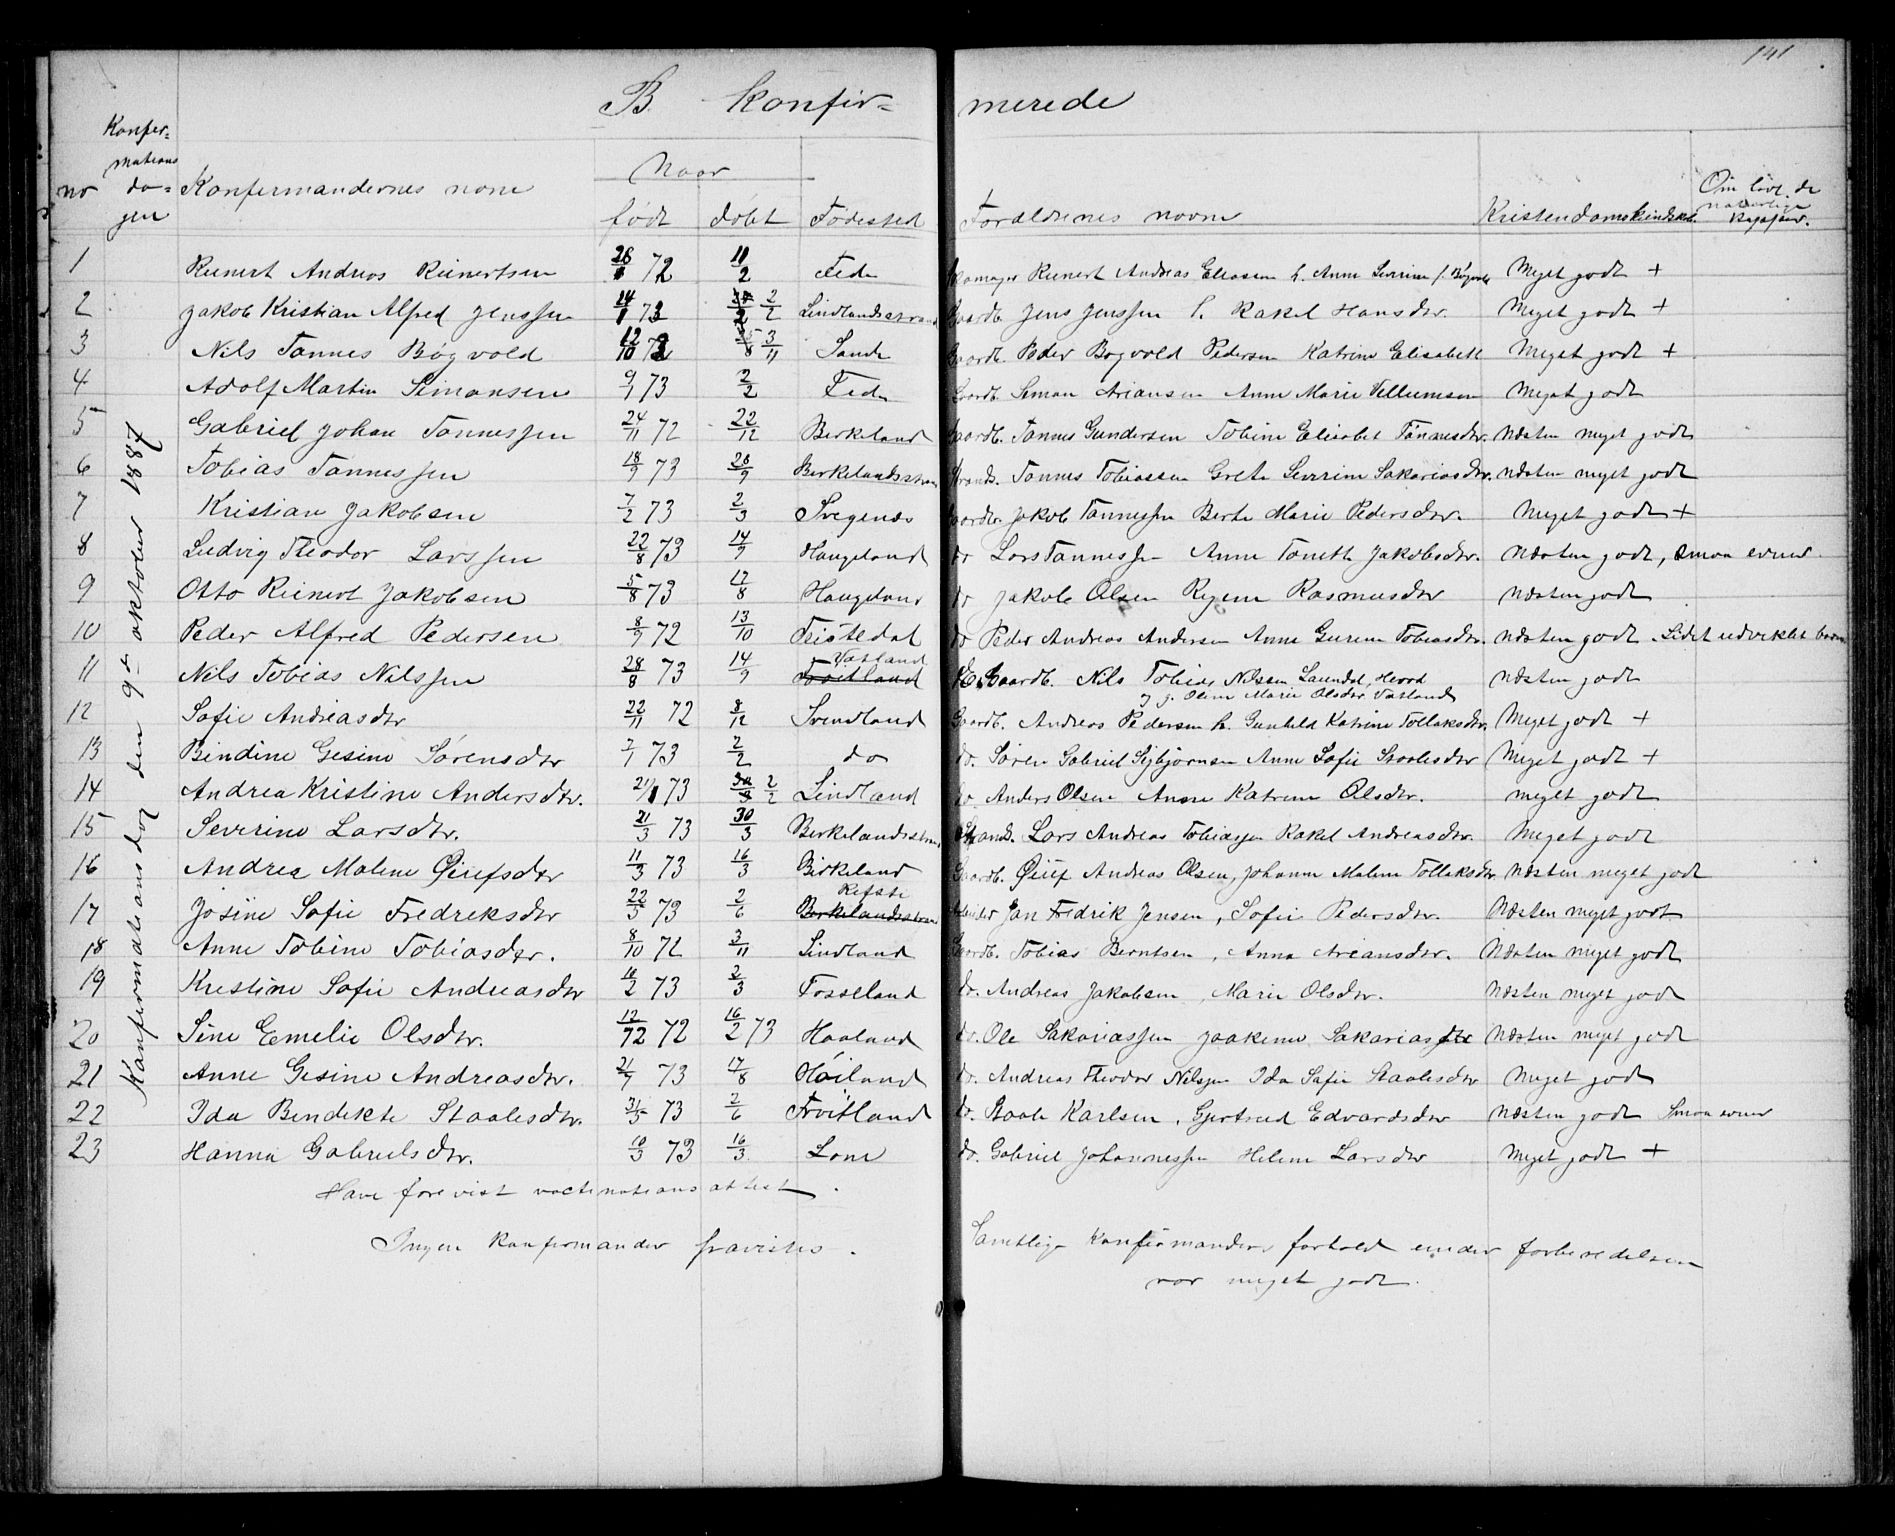 141
B. Konfir= merede
no Konfir= mations da= gen Konfirmandernes navn Naar født døbt Fødested Forældrenes navne Kristendomskundskab
Konfirmationsdag den 9de oktober 1887
1 Reinert Andreas Reinertsen 28/ 72 11/2 Feda Reinert Andreas Eliasen h. Anne Severine Meget godt +
2 Jakob Kristian Alfred Jenssen 14/1 73 2/2 Lindlandsstrand Gaardb. Jens Jenssen h. Rakel Hansdtr. Meget godt +
3 Nils Tønnes Bøgvold 12/10 72 3/11 Sande Gaardb. Peder Bøgvold Pedersen Katrine Elisabeth Meget godt +
4 Adolf Martin Simonsen 9/1 73 2/2 Feda Gaardb. Simon Ariansen Anne Marie Villumsen Meget godt
5 Gabriel Johan Tønnessen 24/11 72 22/12 Birkeland Gaardb. Tønnes Gundersen Tobine Elisabet Tønnesdtr. Næsten meget godt
6 Tobias Tønnessen 18/7 73 28/9 Birkelandsstrand Strands. Tønnes Tobiassen Grete Severine Sakariasdtr. Næsten meget godt
7 Kristian Jakobsen 7/2 73 2/3 Svegenæs Gaardbr. Jakob Tønnessen Berte Marie Pedersdtr. Meget godt +
8 Ludvig Theodor Larssen 22/8 73 14/9 Haugeland do Lars Tønnessen Anne Tomette Jakobsdtr. Næsten godt, smaa evner.
9 Otto Reinert Jakobsen 5/8 73 17/8 Haugeland do Jakob Olsen Regine Rasmusdtr Næsten godt
10 Peder Alfred Pedersen 8/9 72 13/10 Fristedal do Peder Andreas Andersen Anne Gurine Tobiasdtr. Næsten godt. Lidet udviklet barn
11 Nils Tobias Nilssen 28/8 73 14/9 Vatland Gaardb. Nils Tobias Nilssen Laundal, Herred Næsten godt
Oline Marie Olsdtr Vatland
12 Sofie Andreasdtr 22/11 72 8/12 Svindland Gaardb. Andreas Pedersen h. Gunhild Katrine Tollaksdtr. Meget godt +
13 Bendine Gesine Sørensdtr 2/1 73 2/2 do do. Søren Gabriel Sigbjørnsen Anne Sofie Staalesdtr Meget godt +
14 Andrea Kristine Andersdtr. 21/1 73 2/2 Lindland do. Anders Olsen Anne Katrine Olsdtr. meget godt
15 Severine Larsdtr. 21/3 73 30/3 Birkelandsstrand Strands. Lars Andreas Tobiassen Rakel Andreasdtr. Meget godt
16 Andrea Malene Øiufsdtr 11/3 73 16/3 Birkeland Gaardb. Øiuf Andreas Olsen, Johanne Malene Tollaksdtr Næsten meget godt
17 Josine Sofie Fredriksdtr 22/5 73 2/6 Refsti Birkelandsstrand Jan Fredrik Jensen, Sofie Pedersdtr. Næsten meget godt
18 Anne Tobine Tobiasdtr. 8/10 72 3/11 Lindland Gaardb. Tobias Berntsen, Anna Ariansdtr. Næsten meget godt
19 Kristine Sofie Andreasdtr 10/2 73 2/3 Fosseland do. Andreas Jakobsen, Marie Olsdtr. Næsten meget godt
20 Sine Emelie Olsdtr. 12/12 72 16/2 73 Haaland do. Ole Sakariassen Joakime Sakariasdtr Næsten meget godt
21 Anne Gesine Andreasdtr. 21/7 73 17/8 Høiland do. Andreas Theodor Nilssen Ida Sofie Staalesdtr Meget godt
22 Ida Bendikte Staalesdtr. 31/5 73 2/6 Trøitland do. Staale Karlsen, Gjertrud Edvardsdtr Næsten godt Smaa evner
23 Hanna Gabrielsdtr. 10/3 73 16/3 Lone do. Gabriel Johannessen Helene Larsdtr Meget godt +
Have forevist vactinationsattest.
Ingen konfirmander fravistes. Samtlige konfirmanders forhold under forberedelsen
var meget godt.